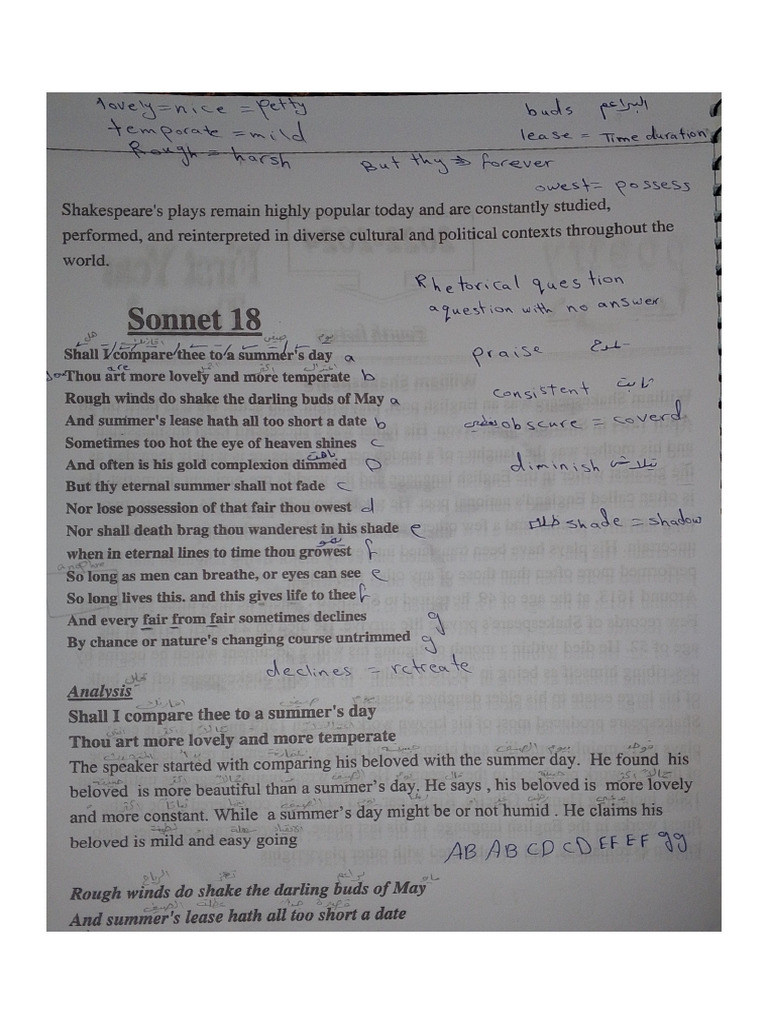 lovely = nice = petty
buds البراعم
temporate = mild
lease = Time duration
Rough = harsh
But thy → forever
owest = possess
Shakespeare's plays remain highly popular today and are constantly studied,
performed, and reinterpreted in diverse cultural and political contexts throughout the
world.
Rhetorical question
a question with no answer
Sonnet 18
هل يوم
Shall I compare thee to a summer's day a
praise
are
Thou art more lovely and more temperate b
consistent ثابت
Rough winds do shake the darling buds of May a
And summer's lease hath all too short a date b
obscure = coverd
Sometimes too hot the eye of heaven shines c
باهت
And often is his gold complexion dimmed D
diminish
But thy eternal summer shall not fade c
Nor lose possession of that fair thou owest d
shade = shadow
Nor shall death brag thou wanderest in his shade e
when in eternal lines to time thou growest f
So long as men can breathe, or eyes can see e
So long lives this. and this gives life to thee f
And every fair from fair sometimes declines g
By chance or nature's changing course untrimmed g
declines = retreate
Analysis
Shall I compare thee to a summer's day
Thou art more lovely and more temperate
The speaker started with comparing his beloved with the summer day. He found his
beloved is more beautiful than a summer's day. He says , his beloved is more lovely
and more constant. While a summer's day might be or not humid . He claims his
beloved is mild and easy going
AB AB CD CD EF EF gg
Rough winds do shake the darling buds of May
And summer's lease hath all too short a date